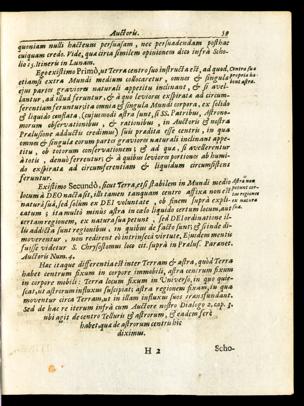 Auctoris. 59
quoniam nulli hactenus persuasum, nec persuadendam posthac
cuiquam credo. Vide, quæ circa similem opinionem dico infrà Scho-
lio 13. Itineris in Lunam.
Ego existimo Primò, ut Terra centro suo instructa est, ad quod,
etiamsi extra Mundi medium collocaretur, omnes & singulæ
ejus partes graviores naturali appetitu inclinant, & si avel-
lantur, ad illud feruntur, & à quo leviores exspirata ad circum-
ferentiam feruntur; ita omnia & singula Mundi corpora, ex solido
& liquido conflata, (cujusmodi astra sunt, si SS. Patribus, Astrono-
morum observationibus, & rationibus, in Auctoris & nostra
Prælusione adductis credimus) suis prædita esse centris, in quæ
omnes & singulæ eorum partes graviores naturali inclinant appe-
titu, ob totorum conservationem; & ad quæ, si avellerentur
à totis, denuò ferrentur; & à quibus leviores portiones ab humi-
do exspirata ad circumferentiam & liquidum circumsistens
feruntur.
Existimo Secundò, sicut Terra, etsi stabilem in Mundi medio
locum à DEO nacta sit, illi tamen tanquam centro affixa non est
naturâ suâ, sed solùm ex DEI voluntate, ob finem suprà expli-
catum; ita multò minùs astra in cælo liquido certum locum, aut
certam regionem, ex natura sua petunt, sed DEI ordinatione il-
lis addicta sunt regionibus, in quibus de facto sunt; & si inde di-
moverentur, non redirent eò intrinsecâ virtute. Ejusdem mentis
fuisse videtur S. Chrysostomus loco cit. suprà in Prælus. Parænet.
Auctoris Num. 4.
Hac itaque differentia est inter Terram & astra, quòd Terra
habet centrum fixum in corpore immobili, astra centrum fixum
in corpore mobili: Terra locum fixum in Universo, in quo quie-
scat, ut astrorum influxum suscipiat; astra regionem fixam, in qua
moveantur circa Terram, ut in illam influxum suos transfundant.
Sed de hac re iterum infrà cum Auctore nostro Dialogo 2. cap. 1.
ubi agit de centro Telluris & astrorum, & eadem ferè
habet, quæ de astrorum centris hîc
diximus.
H 2 Scho-